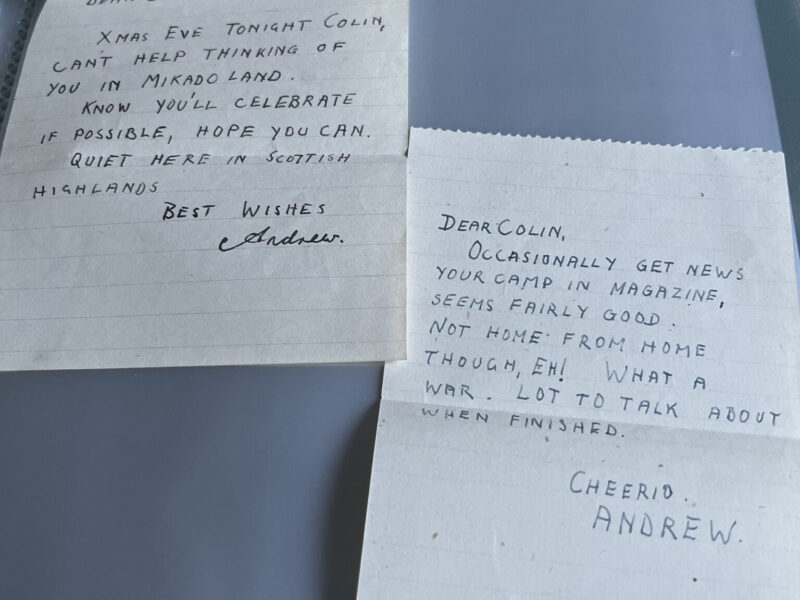 DEAR
XMAS EVE TONIGHT COLIN,
CAN'T HELP THINKING OF
YOU IN MIKADO LAND.
KNOW YOU'LL CELEBRATE
IF POSSIBLE, HOPE YOU CAN.
QUIET HERE IN SCOTTISH
HIGHLANDS
BEST WISHES
Andrew.
DEAR COLIN,
OCCASIONALLY GET NEWS
YOUR CAMP IN MAGAZINE,
SEEMS FAIRLY GOOD.
NOT HOME FROM HOME
THOUGH, EH! WHAT A
WAR. LOT TO TALK ABOUT
WHEN FINISHED.
CHEERIO.
ANDREW.